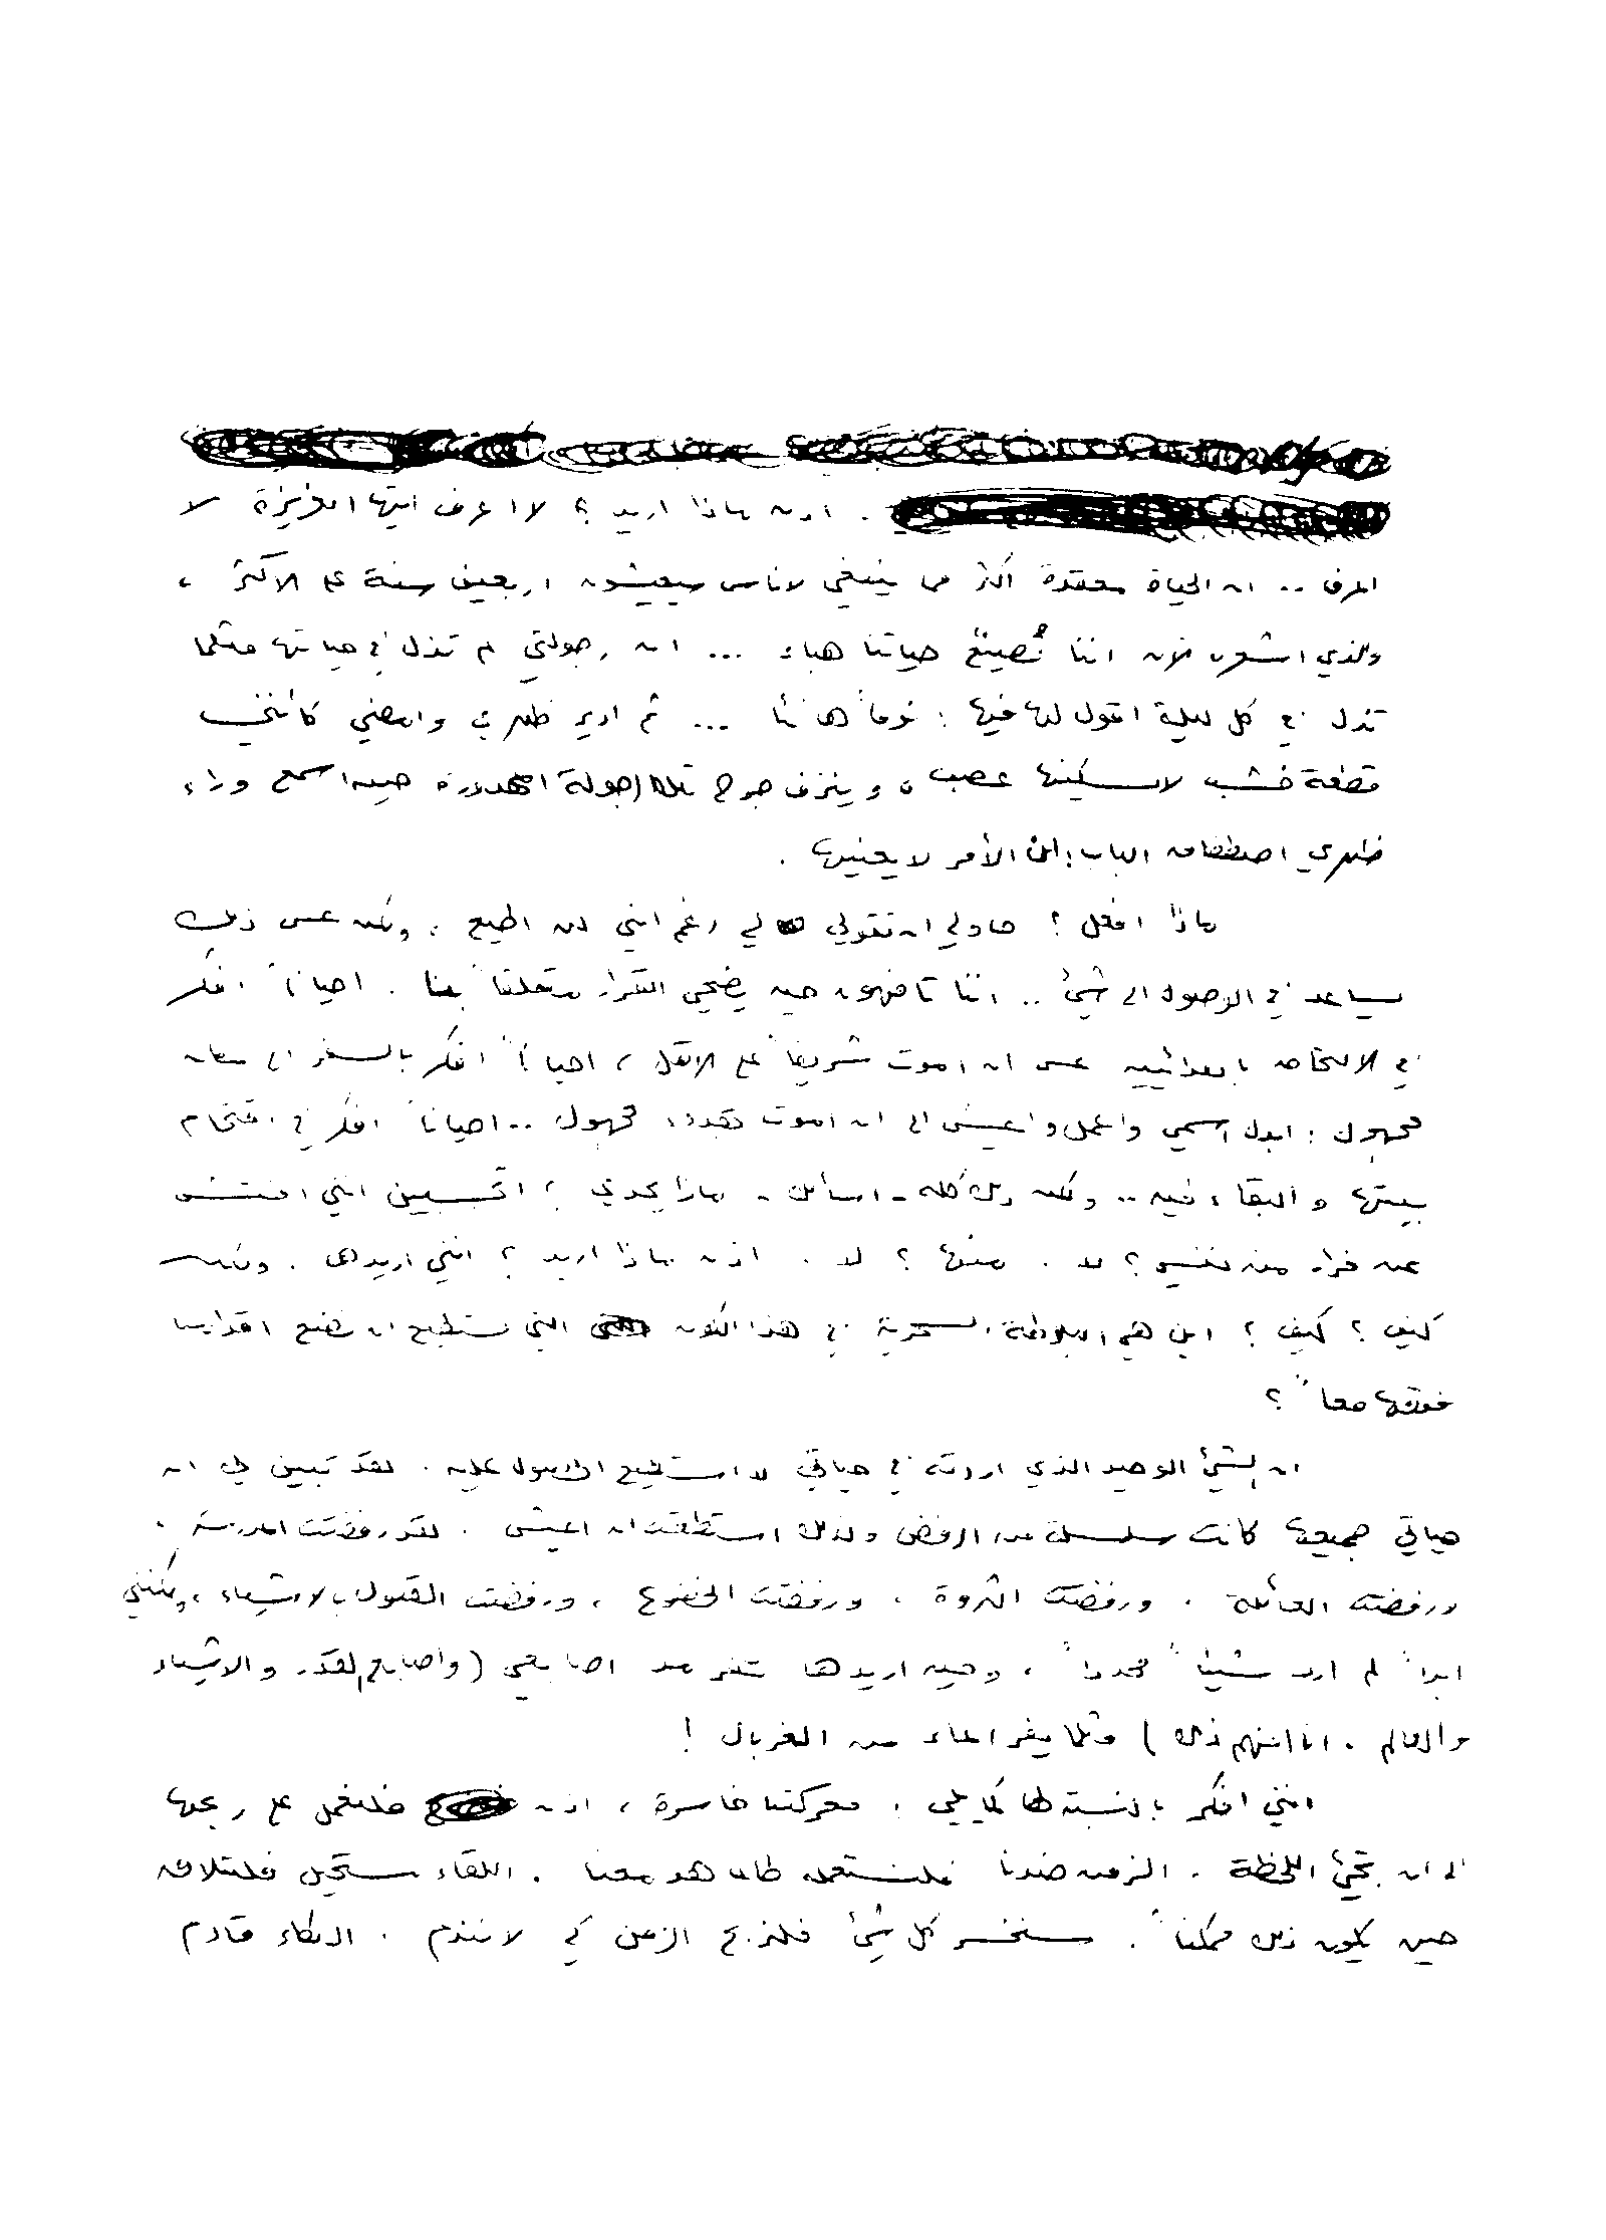 . اذن ماذا اريد ؟ لا اعرف ايتها العزيزة لا
اعرف .. ان الحياة معقدة اكثر مما ينبغي لاناس سيعيشون اربعين سنة على الاكثر ،
والذي اشعره الآن اننا نُضيّع حياتنا هباء ... ان رجولتي لم تذل في حياتها مثلما
تذل في كل ليلة اقول لها فيها : نوماً هانئا ... ثم ادير ظهري وامضي كأنني
قطعة خشب لا سكينها عصب ، وينزف جرح تلك الرجولة المهدورة حين اسمع وراء
ظهري اصطفاق الباب : ان الأمر لا يعنيها .
ماذا افعل ؟ حاولي ان تقولي لي رغم انني لن اطيع . ولكن عسى ذلك
يساعد في الوصول الى شيء .. اننا تافهون حين يضحي القرار متعلقاً بنا . احياناً افكر
في الالتحاق بالفدائيين عسى ان اموت شريفاً على الاقل ، احياناً افكر بالسفر الى مكان
مجهول : ابدل اسمي واعمل واعيش الى ان اموت مجهول .. احياناً افكر في اقتحام
بيتها والبقاء فيه .. ولكن ذلك كله - اسألك - ماذا يجدي ؟ اتحسبين انني افتش
عن فرار من نفسي ؟ لا . منها ؟ لا . اذن ماذا اريد ؟ انني اريدها . ولكن
كيف ؟ كيف ؟ اين هي البلاطة السحرية في هذا الكون التي نستطيع ان نضع اقدامنا
فوقها معاً ؟
ان الشيء الوحيد الذي اردته في حياتي لا استطيع الحصول عليه . لقد تبين لي ان
حياتي جميعها كانت سلسلة من الرفض ولذلك استطعت ان اعيش . لقد رفضت المدرسة .
ورفضت العائلة . ورفضت الثروة . ورفضت الخضوع . ورفضت القبول بالاشياء ، ولكنني
ابداً لم ارد شيئاً محدداً ، وحين اريدها تفر من اصابعي (واصابع القدر والاشياء
والعالم . انا افهم ذلك) مثلما يفر الماء من الغربال !
انني افكر بالنسبة لها كما يلي : معركتنا خاسرة ، اذن فلنعمل على ربحها
الى ان تجيء اللحظة . الزمن ضدنا فلنستعمله طالما هو معنا . اللقاء مستحيل فلنتلاق
حين يكون ذلك ممكناً . سنخسر كل شيء فلنربح الزمن كي لا نندم . البكاء قادم